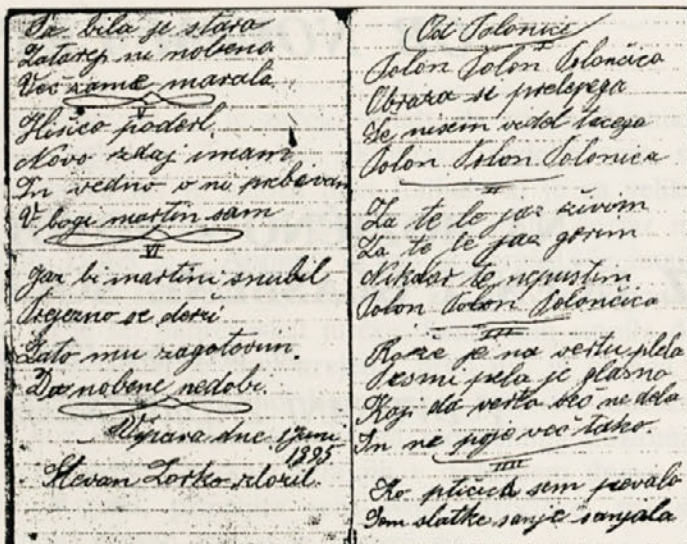 Da bila je stara
Zatarej ni nobeno
Več zame marala
V
Hišico poderl
Novo zdaj imam
In vedno v ni prebevam
V bogi martin sam
VI
Jaz bi martini snubil
Trezno se derži
Zato mu zagotovim.
Da nobene nedobi.
Vipara dne 1 Juni
1895
Stevan Zorko zložil.
Od Polonice
I
Polon Polon Polončica
Obraza si prelepega
Še nisem vidil tacega
Polon Polon Polonica
II
Za te le jaz živom
Za te le jaz gorim
Nikdar te nepustim
Polon Polon Polončica
III
Rože je na vertu plela
Pesmi pela je glasno
Kaj da verta več ne dela
In ne poje več tako.
IIII
Ko ptičica sem pevala
Sem slatke sanje sanjala